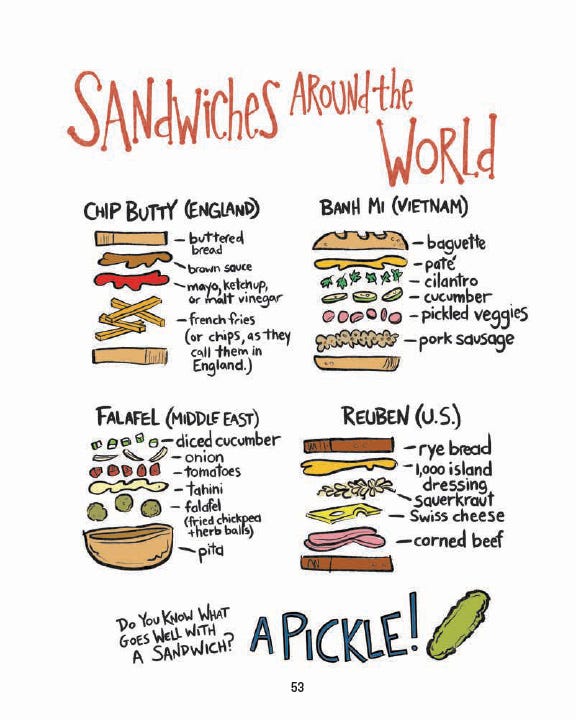 SANDWICHES AROUND the
WORLD
CHIP BUTTY (ENGLAND)
buttered
bread
brown sauce
mayo, ketchup,
or malt vinegar
french fries
(or chips, as they
call them in
England.)
BANH MI (VIETNAM)
baguette
paté
cilantro
cucumber
pickled veggies
pork sausage
FALAFEL (MIDDLE EAST)
diced cucumber
onion
tomatoes
tahini
falafel
(fried chickpea
+herb balls)
pita
REUBEN (U.S.)
rye bread
1,000 island
dressing
sauerkraut
Swiss cheese
corned beef
DO YOU KNOW WHAT
GOES WELL WITH
A SANDWICH?
A PICKLE!
53